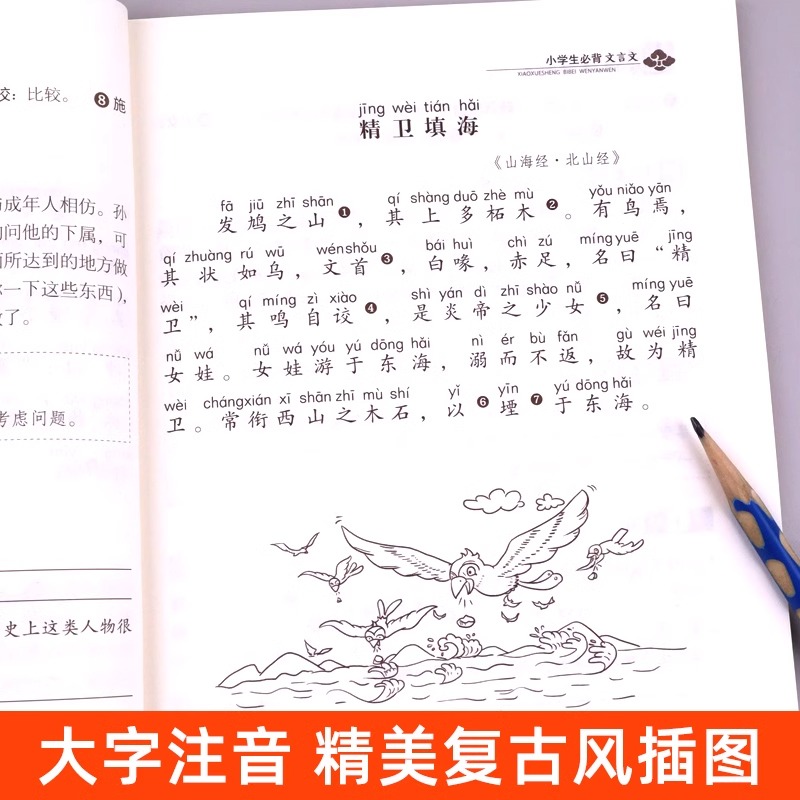 小学生必背文言文
XIAOXUESHENG BIBEI WENYANWEN
较：比较。 ❽ 施
与成年人相仿。孙
问他的下属，可
所达到的地方做
一下这些东西），
了。
考虑问题。
史上这类人物很
jīng wèi tián hǎi
精卫填海
《山海经·北山经》
fā jiū zhī shān qí shàng duō zhè mù yǒu niǎo yān
发鸠之山❶，其上多柘木❷。有鸟焉，
qí zhuàng rú wū wén shǒu bái huì chì zú míng yuē jīng
其状如乌，文首❸，白喙，赤足，名曰“精
wèi qí míng zì xiào shì yán dì zhī shào nǚ míng yuē
卫”，其鸣自詨❹，是炎帝之少女❺，名曰
nǚ wá nǚ wá yóu yú dōng hǎi nì ér bù fǎn gù wéi jīng
女娃。女娃游于东海，溺而不返，故为精
wèi cháng xián xī shān zhī mù shí yǐ yīn yú dōng hǎi
卫。常衔西山之木石，以❻堙❼于东海。
大字注音 精美复古风插图